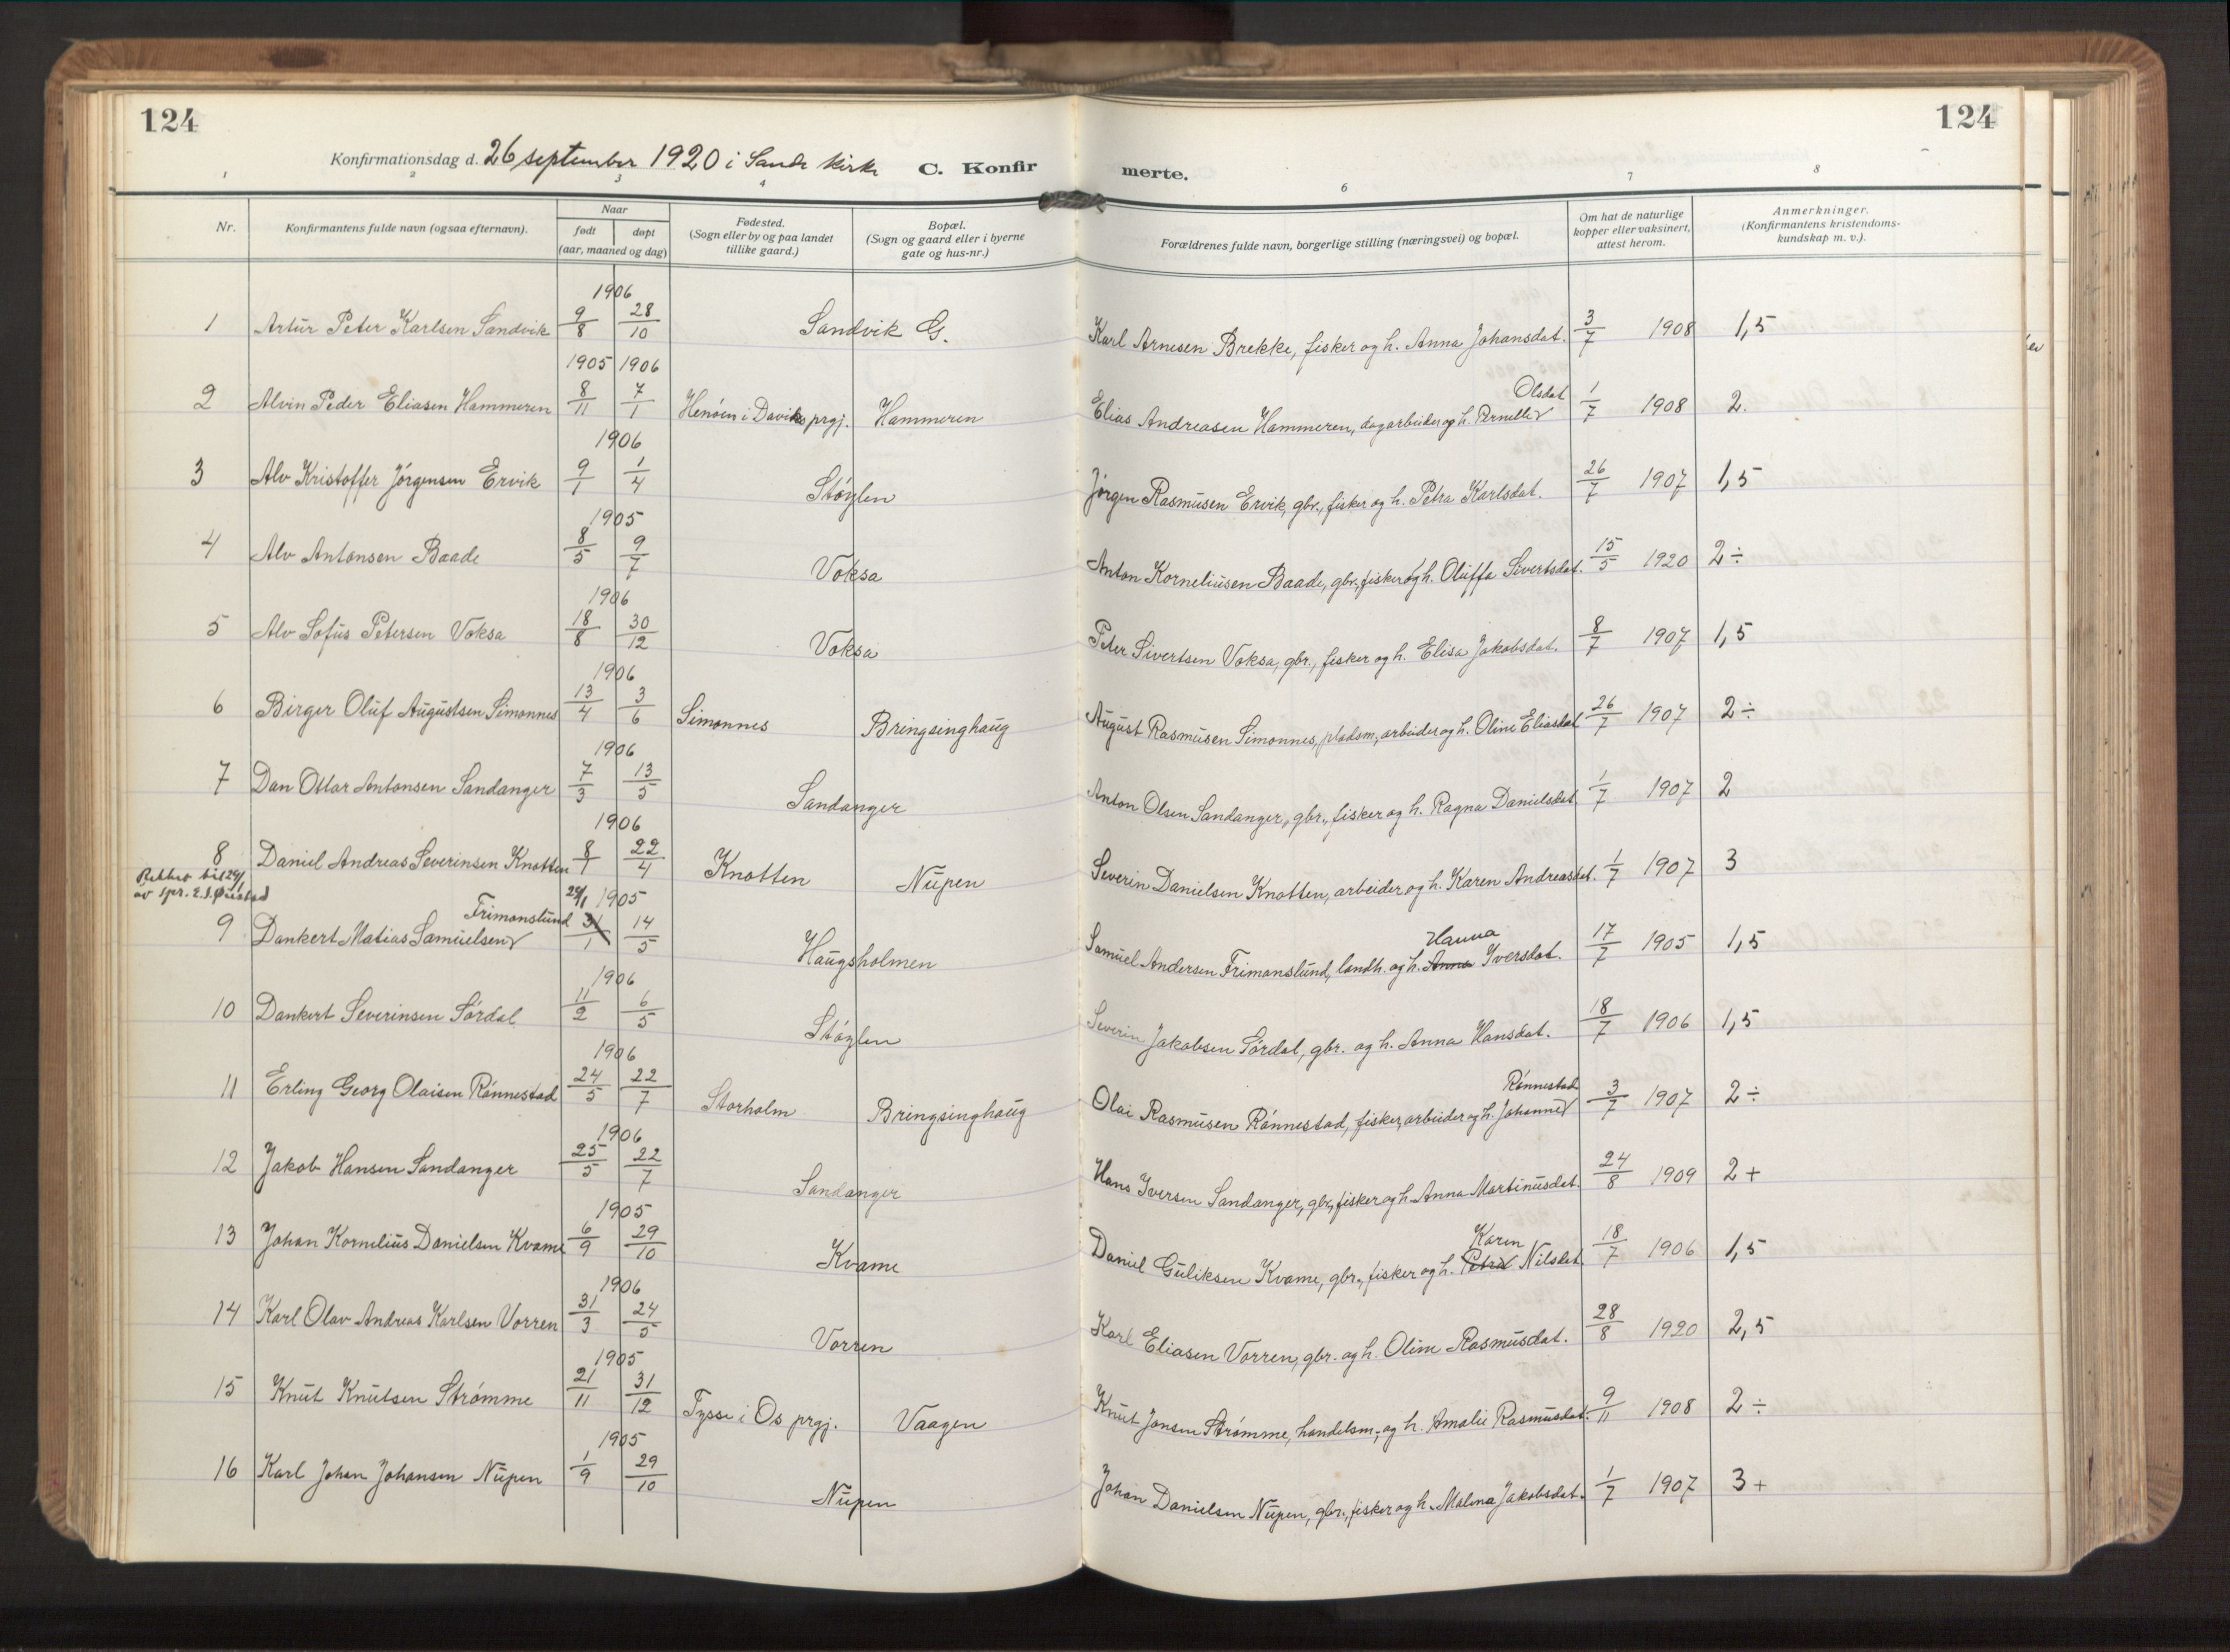 124
124
Konfirmationsdag d. 26 september 1920 i Sande kirke C. Konfir merte.
1 2 3 4 6 7 8
Nr. Konfirmantens fulde navn (ogsaa efternavn). Naar født døpt (aar, maaned og dag) Fødested. (Sogn eller by og paa landet tillike gaard.) Bopæl. (Sogn og gaard eller i byerne gate og hus-nr.) Forældrenes fulde navn, borgerlige stilling (næringsvei) og bopæl. Om hat de naturlige kopper eller vaksinert, attest herom. Anmerkninger. (Konfirmantens kristendoms-kundskap m. v.).
1906
1 Artur Peter Karlsen Sandvik 9/8 28/10 Sandvik G. Karl Arnesen Brekke, fisker og h. Anna Johansdat. 3/7 1908 1,5
1905 1906
2 Alvin Peder Eliasen Hammeren 8/11 7/1 Henöen i Daviks prgj. Hammeren Elias Andreasen Hammeren, dagarbeider og h. Pernille Olsdat 1/7 1908 2.
1906
3 Alv Kristoffer Jörgensen Ervik 9/1 1/4 Stöylen Jörgen Rasmusen Ervik, gbr., fisker og h. Petra Karlsdat. 26/7 1907 1,5
1905
4 Alv Antonsen Baade 8/5 9/7 Voksa Anton Korneliusen Baade, gbr., fisker og h. Oluffa Sivertsdat. 15/5 1920 2 ÷
1906
5 Alv Sofus Petersen Voksa 18/8 30/12 Voksa Peter Sivertsen Voksa, gbr., fisker og h. Elisa Jakobsdat. 8/7 1907 1,5
1906
6 Birger Oluf Augustsen Simonnes 13/4 3/6 Simonnes Bringsinghaug August Rasmusen Simonnes, pladsm., arbeider og h. Oline Eliasdat 26/7 1907 2 ÷
1906
7 Dan Ottar Antonsen Sandanger 7/3 13/5 Sandanger Anton Olsen Sandanger, gbr., fisker og h. Ragna Danielsdat 1/7 1907 2
1906
8 Daniel Andreas Severinsen Knotten 8/1 22/4 Knotten Nupen Severin Danielsen Knotten, arbeider og h. Karen Andreasdat. 1/7 1907 3
Rettet til 29/1
av spr. E. J. Øiestad
29/1 1905
9 Dankert Matias Samuelsen Frimanslund 31/1 14/5 Haugsholmen Samuel Andersen Frimanslund, landh. og h. Anna Hanna Iversdat. 17/7 1905 1,5
1906
10 Dankert Severinsen Sördal 11/2 6/5 Stöylen Severin Jakobsen Sördal, gbr. og h. Anna Hansdat. 18/7 1906 1,5
1906
11 Erling Georg Olaisen Rönnestad 24/5 22/7 Storholm Bringsinghaug Olai Rasmusen Rönnestad, fisker, arbeider og h. Johanne Rönnestad 3/7 1907 2 ÷
1906
12 Jakob Hansen Sandanger 25/5 22/7 Sandanger Hans Iversen Sandanger, gbr., fisker og h. Anna Martinusdat. 24/8 1909 2 +
1905
13 Johan Kornelius Danielsen Kvame 6/9 29/10 Kvame Daniel Guliksen Kvame, gbr., fisker og h. Petra Karen Nilsdat. 18/7 1906 1,5
1906
14 Karl Olav Andreas Karlsen Vorren 31/3 24/5 Vorren Karl Eliasen Vorren, gbr. og h. Oline Rasmusdat. 28/8 1920 2,5
1905
15 Knut Knutsen Strömme 21/11 31/12 Tysse i Os prgj. Vaagen Knut Jonsen Strömme, handelsm., og h. Amalie Rasmusdat. 9/11 1908 2 ÷
1905
16 Karl Johan Johansen Nupen 1/9 29/10 Nupen Johan Danielsen Nupen, gbr., fisker og h. Malena Jakobsdat. 1/7 1907 3 +